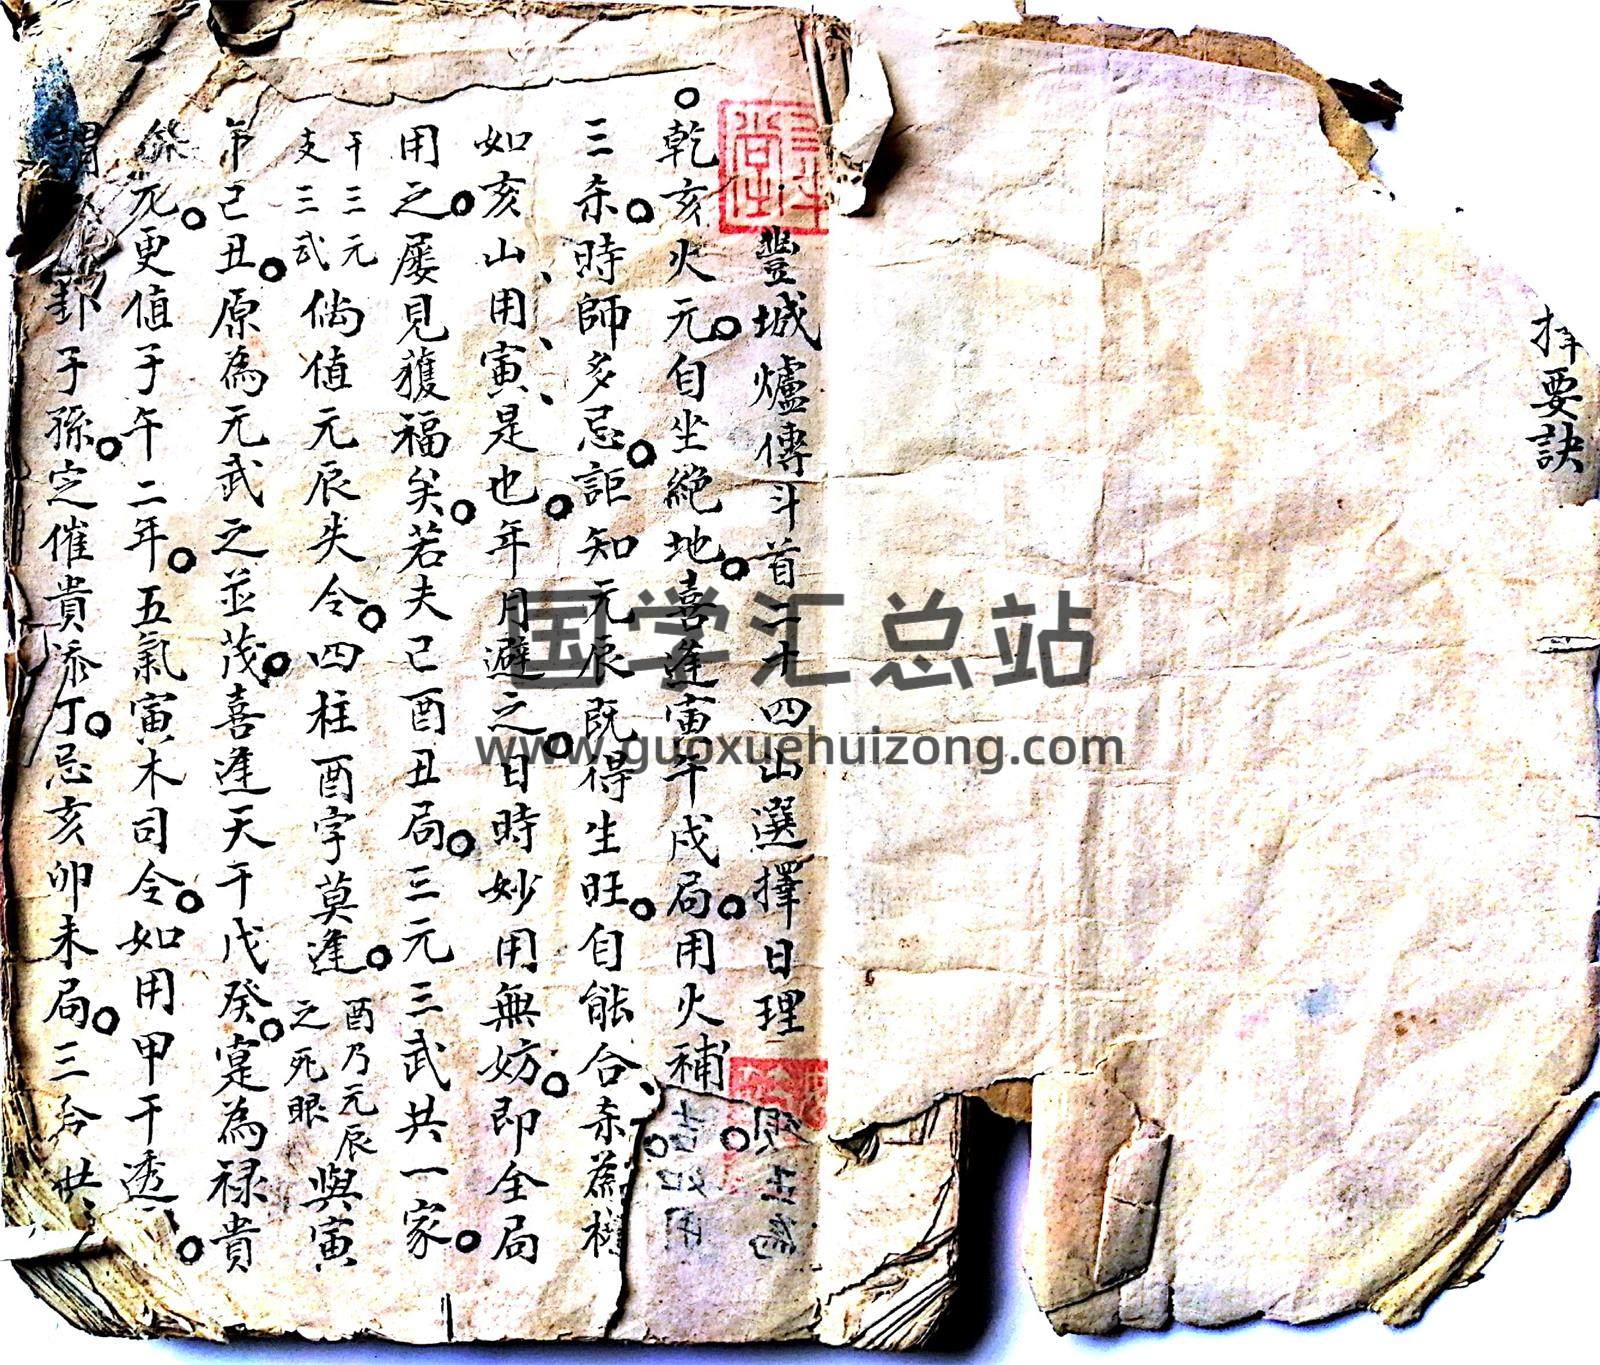 擇要訣
豐城爐傳斗首二十四山選擇日理
乾亥火元自坐絕地喜逢寅午戌局用火補
三杀時師多忌詎知元辰既得生旺自能合杀為
如亥山用寅是也年月避之日時妙用無妨即全局
用之屡見獲福矣若夫己酉丑局三元三武共一家
干三元
支三武
倘值元辰失令四柱酉字莫逢
酉乃元辰
之死眼
與寅
午己丑原為元武之並茂喜逢天干戊癸寔為禄貴
元更值子午二年五氣寅木司令如用甲干透
卦子孫定催貴添丁忌亥卯未局三合
国学汇总站
www.guoxuehuizong.com